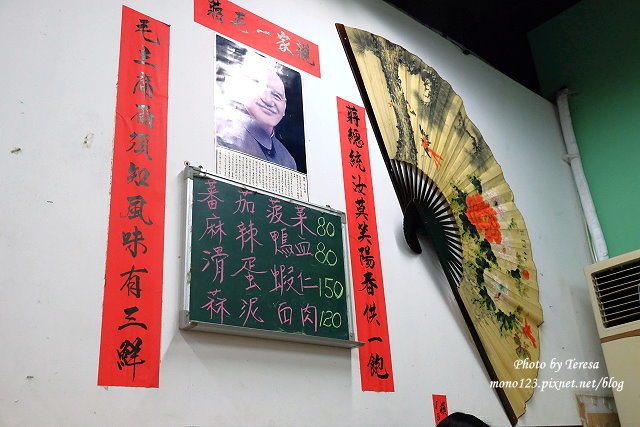 蔣毛一家親
毛主席爾須知風味有三鮮
蔣總統汝莫笑陽春供一飽
蕃茄菠菜80
麻辣鴨血80
滑蛋蝦仁150
蒜泥白肉120
Photo by Teresa
mono123.pixnet.net/blog